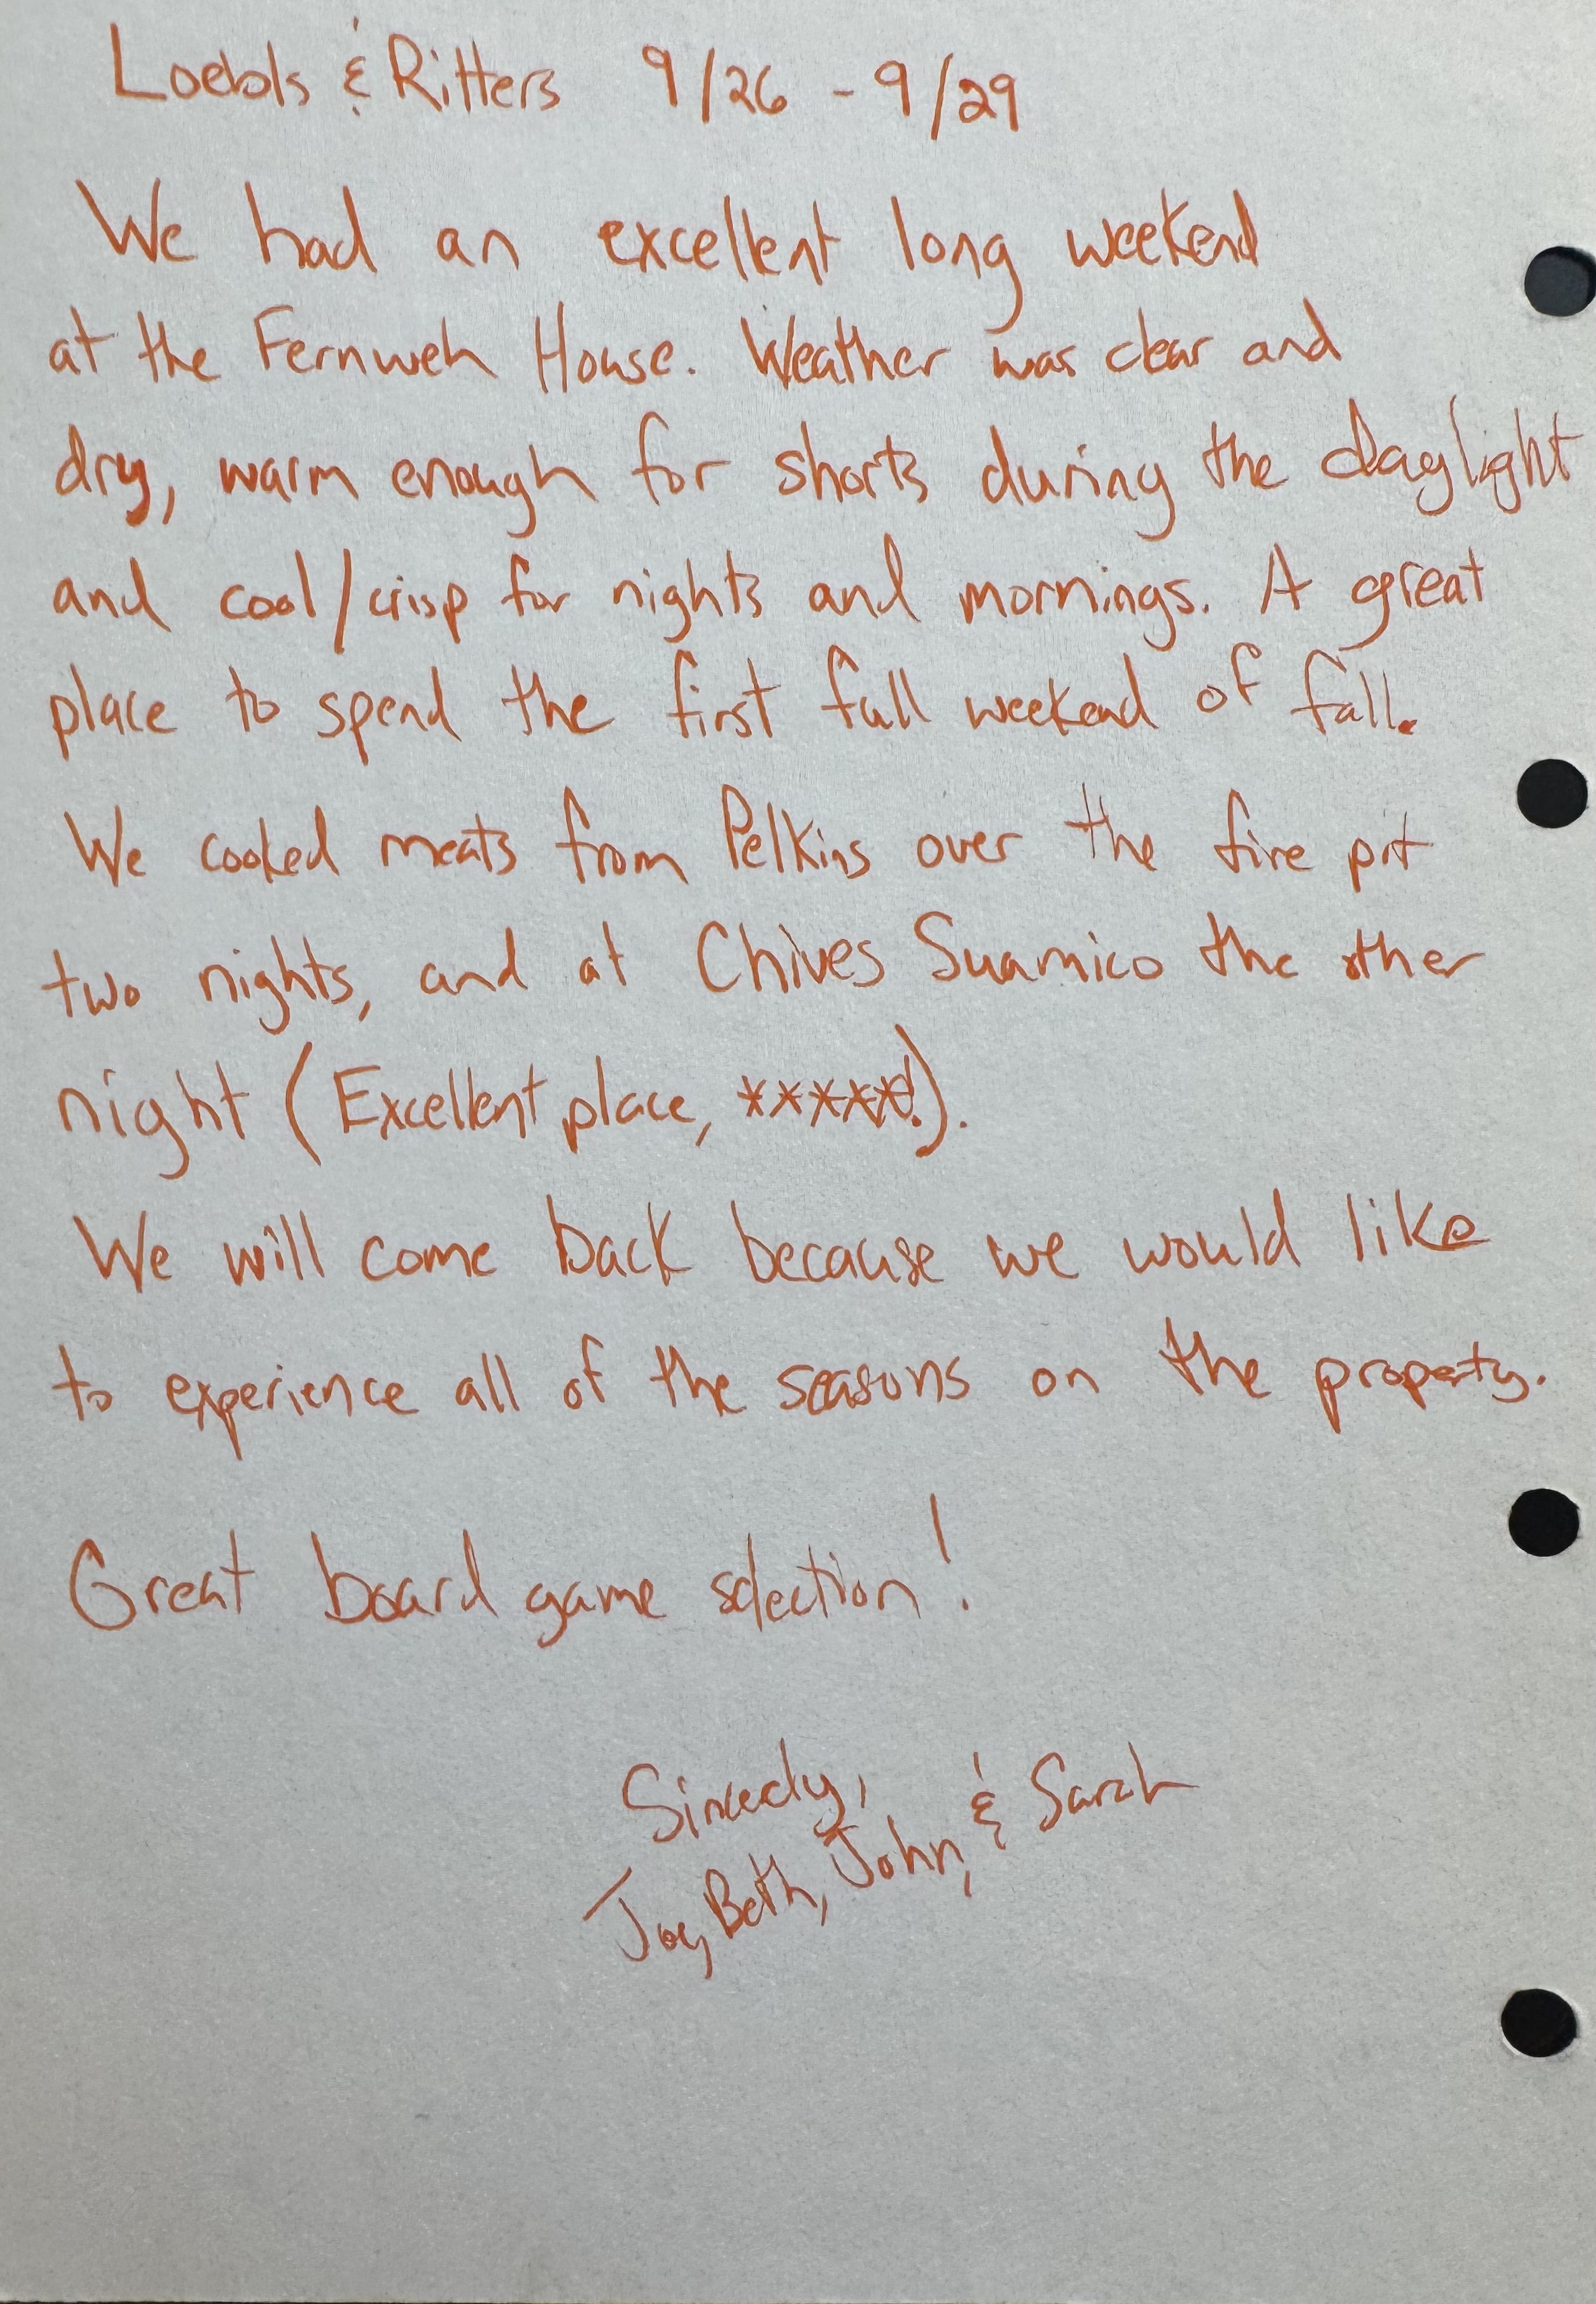 Loebls & Ritters 9/26 - 9/29
We had an excellent long weekend
at the Fernweh House. Weather was clear and
dry, warm enough for shorts during the daylight
and cool/crisp for nights and mornings. A great
place to spend the first full weekend of fall.
We cooked meats from Pelkins over the fire pit
two nights, and at Chives Suamico the other
night (Excellent place, *****!).
We will come back because we would like
to experience all of the seasons on the property.
Great board game selection!
Sincerely,
Joe, Beth, John, & Sarah